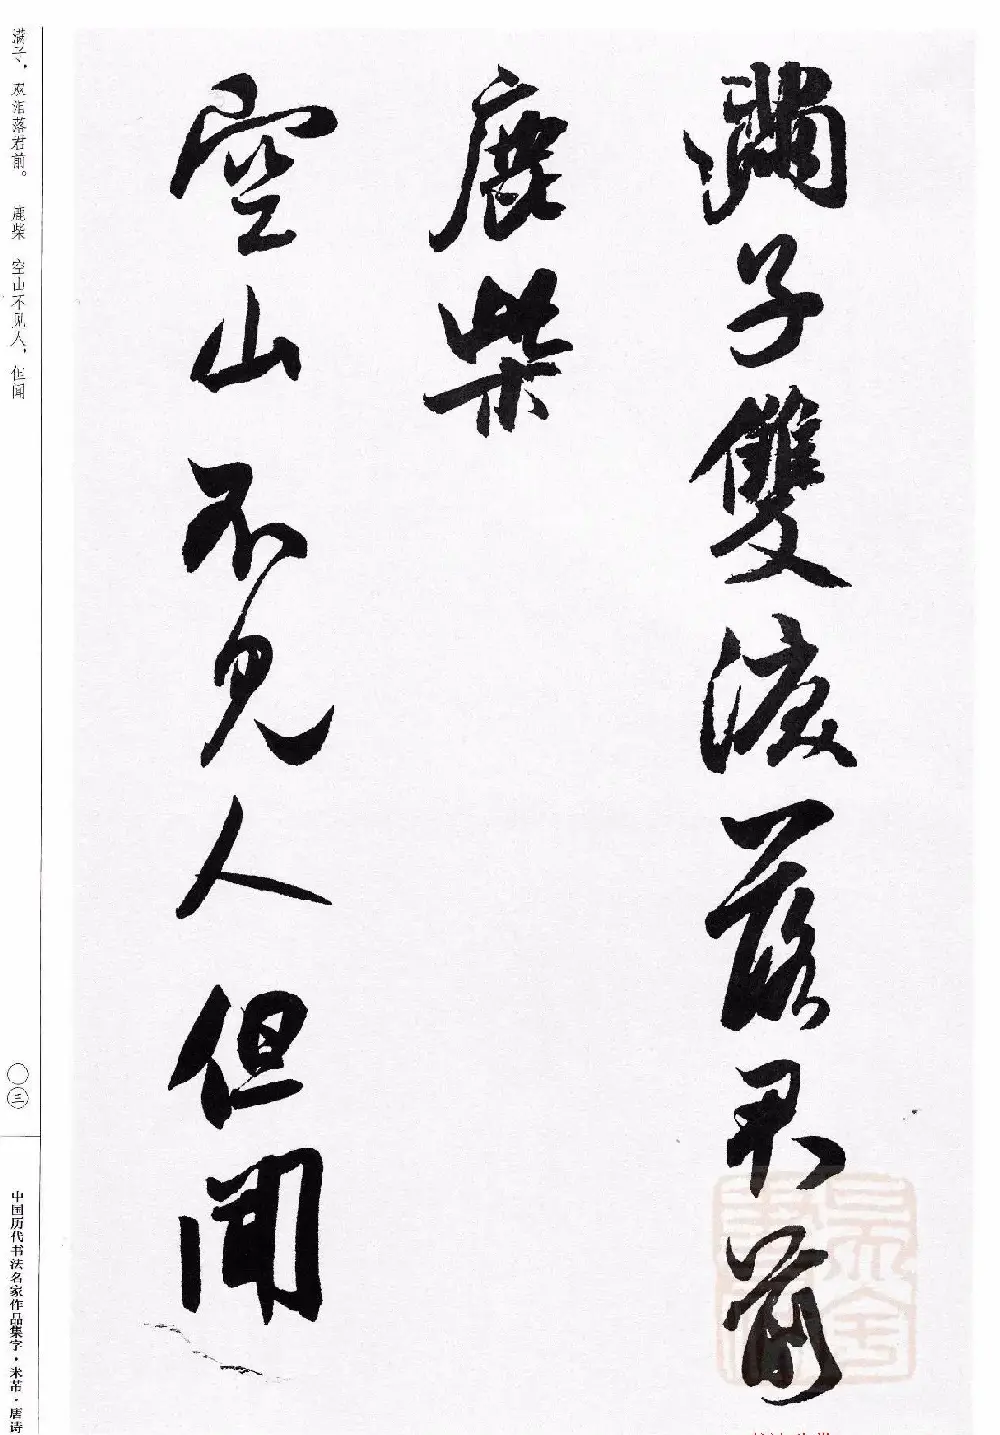 满子雙淚落君前
鹿柴
空山不見人但聞
满子，双泪落君前。 鹿柴 空山不见人，但闻
〇三
中国历代书法名家作品集字·米芾·唐诗